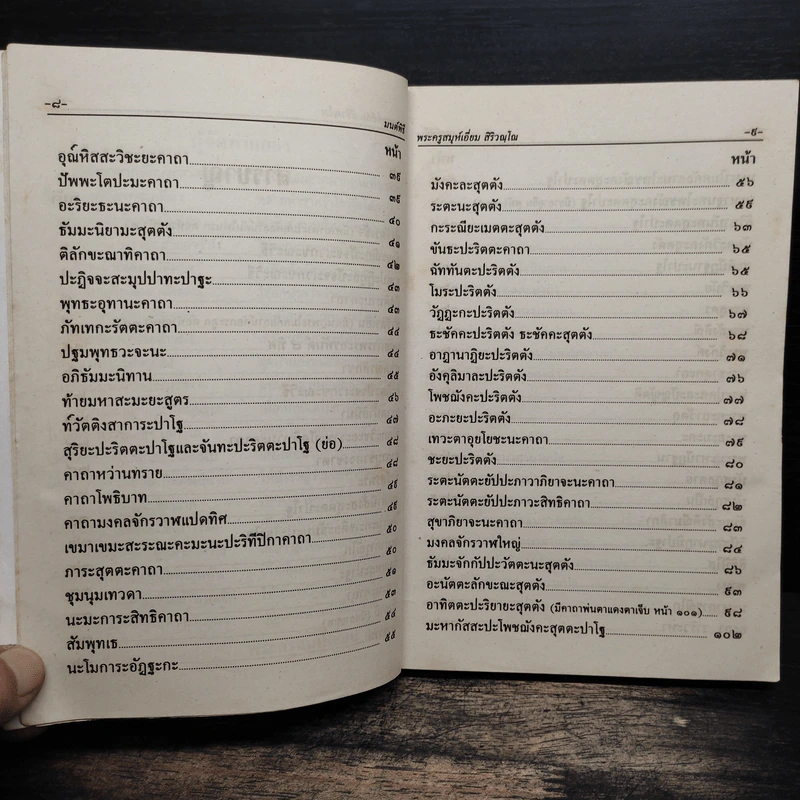 -๘-
มนต์พิธี
หน้า
อุณ๎หิสสะวิชะยะคาถา ๓๙
ปัพพะโตปะมะคาถา ๓๙
อะริยะธะนะคาถา ๔๐
ธัมมะนิยามะสุตตัง ๔๑
ติลักขะณาทิคาถา ๔๒
ปะฏิจจะสะมุปปาทะปาฐะ ๔๓
พุทธะอุทานะคาถา ๔๓
ภัทเทกะรัตตะคาถา ๔๔
ปฐมพุทธวะจะนะ ๔๔
อภิธัมมะนิทาน ๔๕
ท้ายมหาสะมะยะสูตร ๔๖
ท๎วัตติงสาการะปาโฐ ๔๗
สุริยะปะริตตะปาโฐและจันทะปะริตตะปาโฐ (ย่อ) ๔๘
คาถาหว่านทราย ๔๘
คาถาโพธิบาท ๔๙
คาถามงคลจักรวาฬแปดทิศ ๔๙
เขมาเขมะสะระณะคะมะนะปะริทีปิกาคาถา ๕๐
ภาระสุตตะคาถา ๕๐
ชุมนุมเทวดา ๕๑
นะมะการะสิทธิคาถา ๕๓
สัมพุทเธ ๕๔
นะโมการะอัฏฐะกะ ๕๕
พระครูสมุห์เอี่ยม สิริวณฺโณ
-๙-
หน้า
มังคะละสุตตัง ๕๖
ระตะนะสุตตัง ๕๙
กะระณียะเมตตะสุตตัง ๖๓
ขันธะปะริตตะคาถา ๖๕
ฉัททันตะปะริตตัง ๖๕
โมระปะริตตัง ๖๖
วัฏฏะกะปะริตตัง ๖๗
ธะชัคคะปะริตตัง ธะชัคคะสุตตัง ๖๘
อาฏานาฏิยะปะริตตัง ๗๑
อังคุลิมาละปะริตตัง ๗๖
โพชฌังคะปะริตตัง ๗๗
อะภะยะปะริตตัง ๗๘
เทวะตาอุยโยชะนะคาถา ๗๙
ชะยะปะริตตัง ๘๐
ระตะนัตตะยัปปะภาวาภิยาจะนะคาถา ๘๑
ระตะนัตตะยัปปะภาวะสิทธิคาถา ๘๒
สุขาภิยาจะนะคาถา ๘๓
มงคลจักรวาฬใหญ่ ๘๔
ธัมมะจักกัปปะวัตตะนะสุตตัง ๘๖
อะนัตตะลักขะณะสุตตัง ๙๓
อาทิตตะปะริยายะสุตตัง (มีคาถาพ่นตาแดงตาเจ็บ หน้า ๑๐๑) ๙๘
มะหากัสสะปะโพชฌังคะสุตตะปาโฐ ๑๐๒